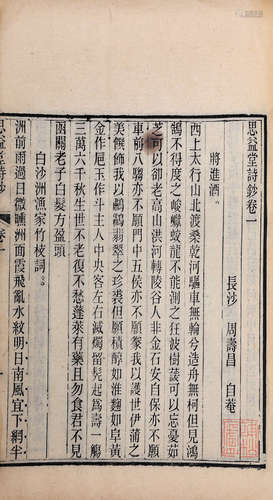 思益堂詩鈔卷一
長沙 周壽昌 自菴
將進酒
西上太行山北渡桑乾河驅車無輪兮造舟無柁但見鴻
鵠不得度之峻巘蛟龍不能測之狂波樹藼可以忘憂茹
芝可以卻老高山洪河轉陵谷人非金石安自保亦不願
車前八騶亦不願門中五侯亦不願豢我以護世伊蒲之
美饌飾我以鸕鷀翡翠之珍裘但願積醇如淮麴如阜黃
金作卮玉作斗主人中央客左右滅燭留髡起爲壽一觴
三萬六千秋生世不老復不愁蓬萊有藥且勿食君不見
函關老子白髮方盈頭
白沙洲漁家竹枝詞
洲前雨過日微曛洲面霞飛亂水紋明日南風宜下網半
思益堂詩鈔 卷一